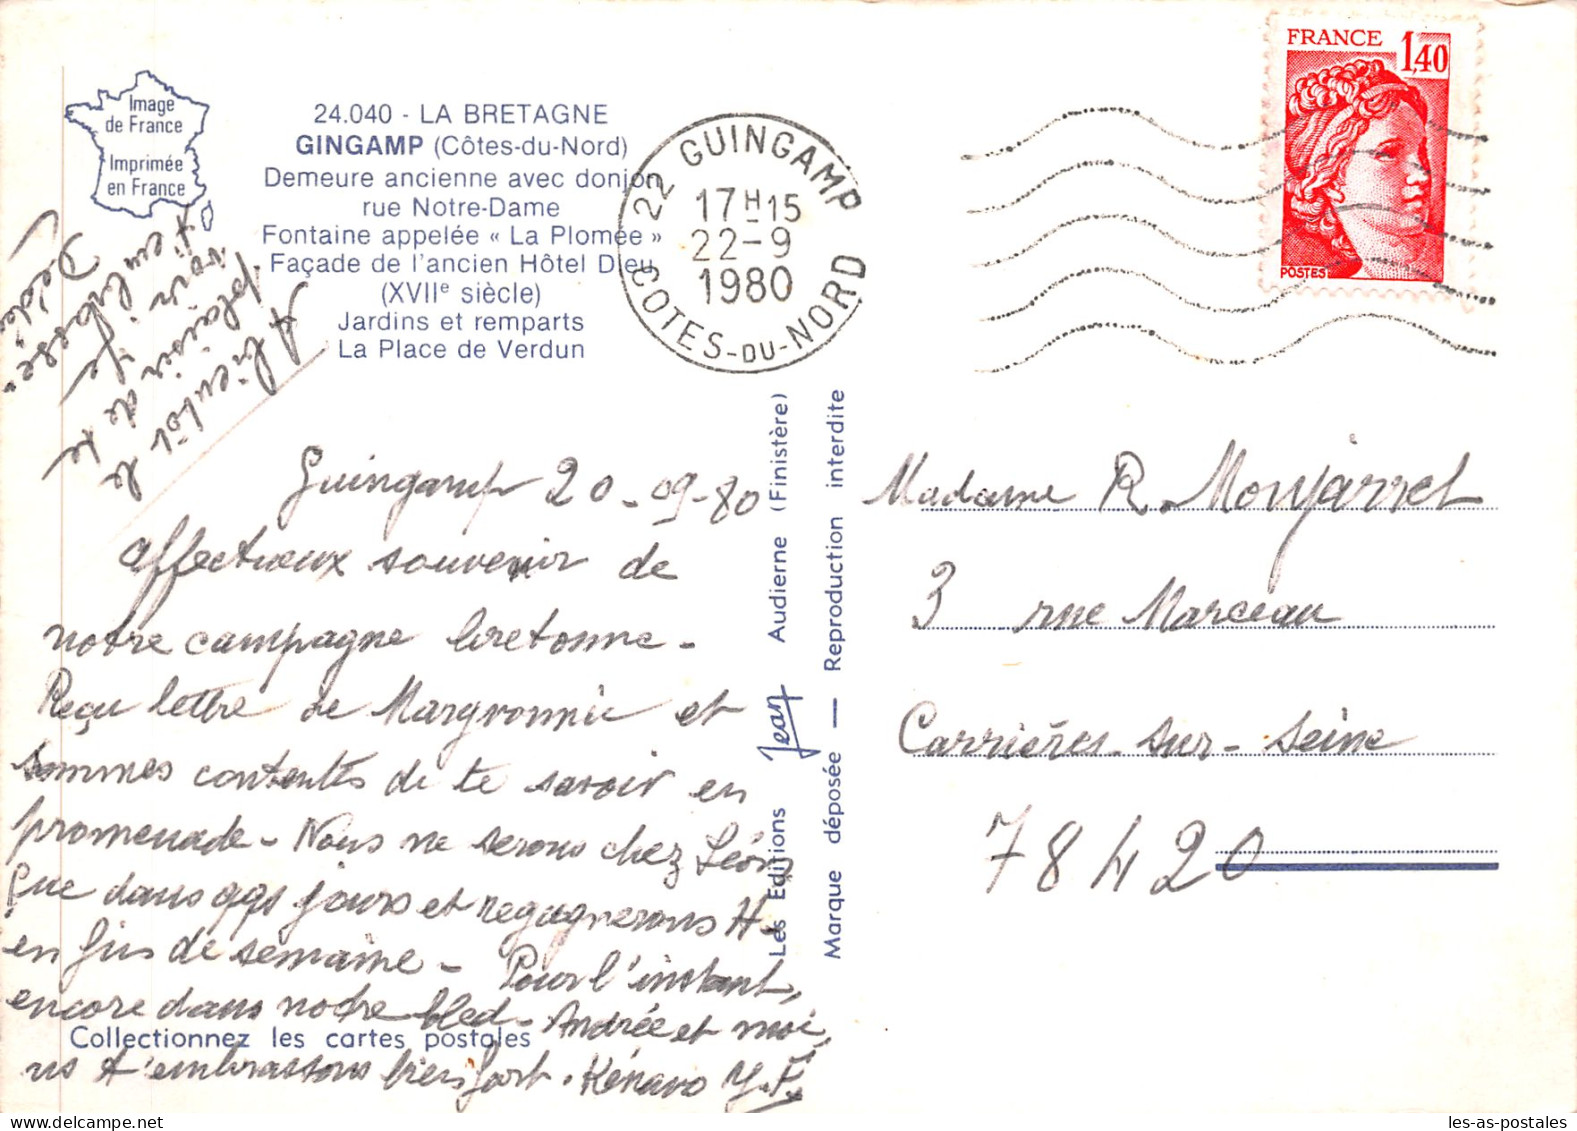 Image
de France
Imprimée
en France
24.040 - LA BRETAGNE
GINGAMP (Côtes-du-Nord)
Demeure ancienne avec donjon
rue Notre-Dame
Fontaine appelée « La Plomée »
Façade de l'ancien Hôtel Dieu
(XVIIe siècle)
Jardins et remparts
La Place de Verdun
22 GUINGAMP
17H15
22-9
1980
COTES-DU-NORD
FRANCE
1,40
POSTES
A bientôt le
plaisir de te
voir. Je
t'embrasse.
Dédée
Guingamp 20-09-80
affectueux souvenir de
notre campagne bretonne-
Reçu lettre de Margvonnic et
sommes contentes de te savoir en
promenade- Nous ne serons chez Léons
que dans qqs jours et regagnerons H-
en fin de semaine- Pour l'instant,
encore dans notre bled- Andrée et moi,
ns t'embrassons bien fort. Kénavo Y.F.
Collectionnez les cartes postales
Les Editions Jean Audierne (Finistère)
Marque déposée — Reproduction interdite
Madame R. Monjarret
3 rue Marceau
Carrières-sur-Seine
78420
les-as-postales